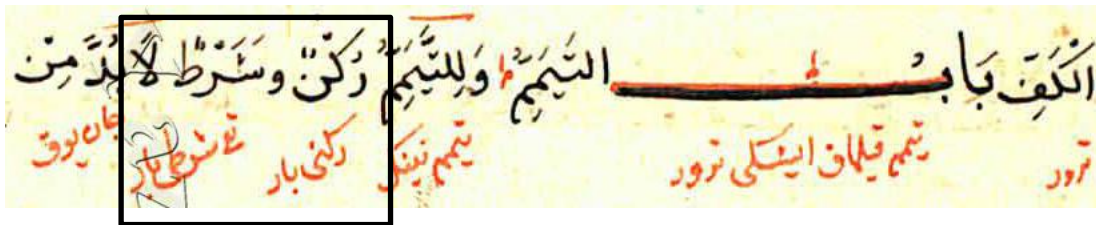 الْكَفِّ بَابُ التَّيَمُّمِ وَلِلتَّيَمُّمِ رُكْنٌ وَشَرْطٌ لَا بُدَّ مِنْ
ترور تيمم قيلماق ايشكى ترور تيمم نينك ركنى بار تى شرطى بار چاره يوق